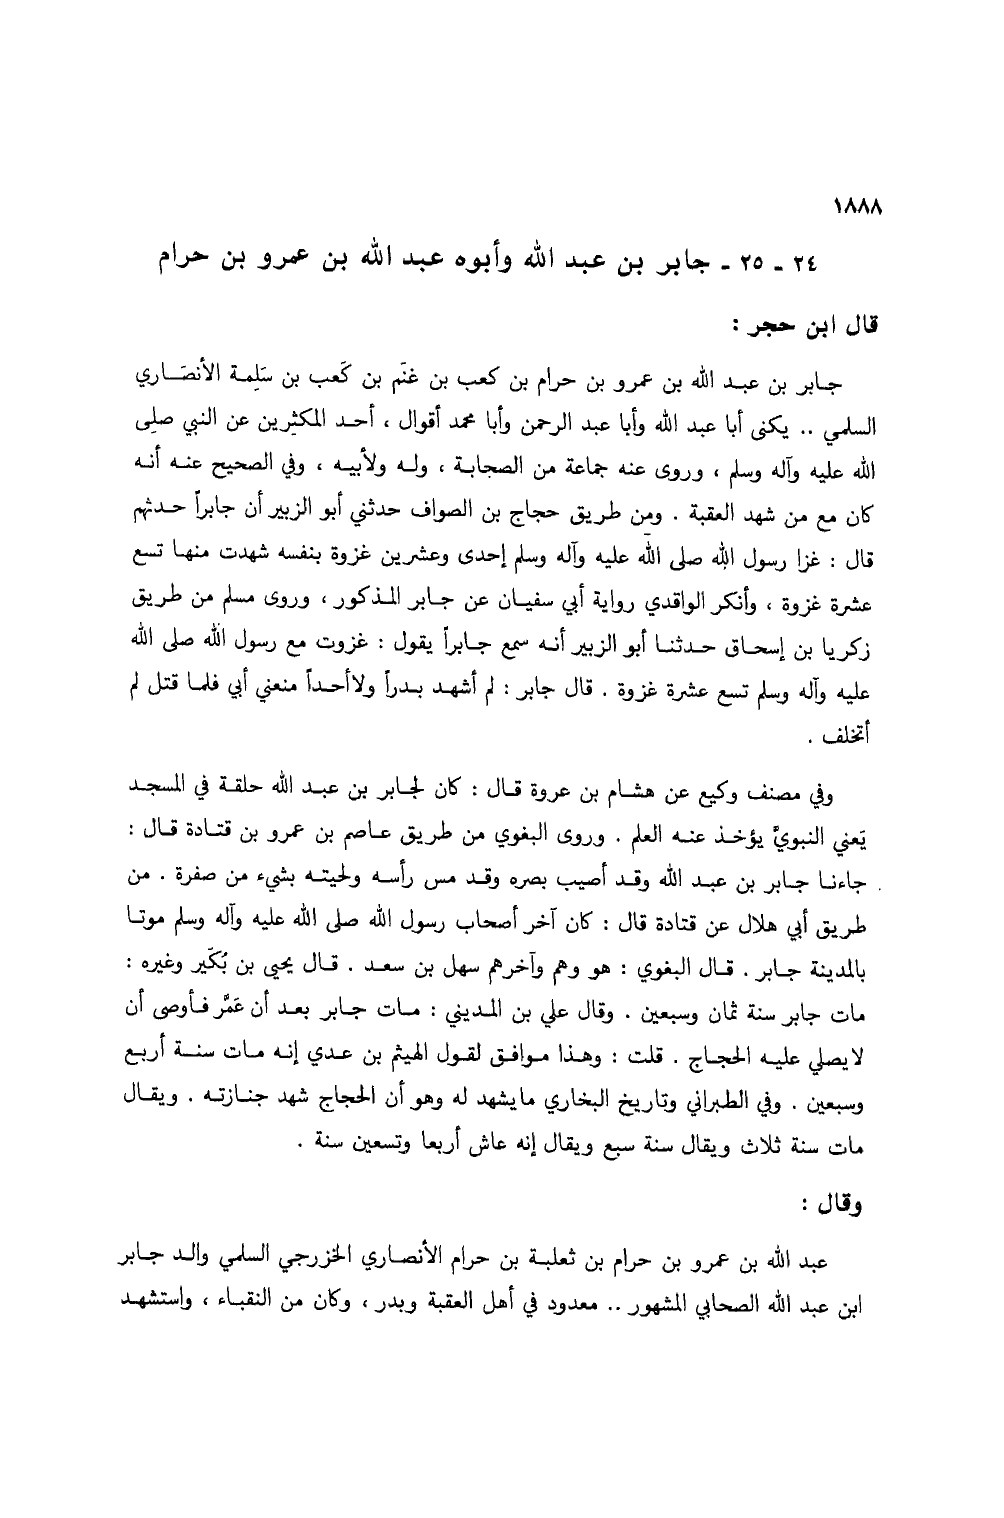 ١٨٨٨
٢٤ ـ ٢٥ ـ جابر بن عبد الله وأبوه عبد الله بن عمرو بن حرام
قال ابن حجر :
جابر بن عبد الله بن عمرو بن حرام بن كعب بن غنَم بن كَعب بن سَلِمة الأنصَاري
السلمي .. يكنى أبا عبد الله وأبا عبد الرحمن وأبا محمد أقوال ، أحد المكثِرين عن النبي صلى
الله عليه وآله وسلم ، وروى عنه جماعة من الصحابة ، وله ولأبيه ، وفي الصحيح عنه أنه
كان مع من شهد العقبة . ومن طريق حجاج بن الصواف حدثني أبو الزبير أن جابراً حدثهم
قال : غزا رسول الله صلى الله عليه وآله وسلم إحدى وعشرين غزوة بنفسه شهدت منها تسع
عشرة غزوة ، وأنكر الواقدي رواية أبي سفيان عن جابر المذكور ، وروى مسلم من طريق
زكريا بن إسحاق حدثنا أبو الزبير أنه سمع جابراً يقول : غزوت مع رسول الله صلى الله
عليه وآله وسلم تسع عشرة غزوة . قال جابر : لم أشهد بدراً ولاأحداً منعني أبي فلما قتل لم
أتخلف .
وفي مصنف وكيع عن هشام بن عروة قال : كان لجابر بن عبد الله حلقة في المسجد
يَعني النبويَّ يؤخذ عنه العلم . وروى البغوي من طريق عاصم بن عمرو بن قتادة قال :
جاءنا جابر بن عبد الله وقد أصيب بصره وقد مس رأسه ولحيته بشيء من صفرة . من
طريق أبي هلال عن قتادة قال : كان آخر أصحاب رسول الله صلى الله عليه وآله وسلم موتا
بالمدينة جابر . قال البغوي : هو وهم وآخرهم سهل بن سعد . قال يحيى بن بُكَير وغيره :
مات جابر سنة ثمان وسبعين . وقال علي بن المديني : مات جابر بعد أن عَمَّر فأوصى أن
لايصلي عليه الحجاج . قلت : وهذا موافق لقول الهيثم بن عدي إنه مات سنة أربع
وسبعين . وفي الطبراني وتاريخ البخاري مايشهد له وهو أن الحجاج شهد جنازته . ويقال
مات سنة ثلاث ويقال سنة سبع ويقال إنه عاش أربعا وتسعين سنة .
وقال :
عبد الله بن عمرو بن حرام بن ثعلبة بن حرام الأنصاري الخزرجي السلمي والد جابر
ابن عبد الله الصحابي المشهور .. معدود في أهل العقبة وبدر ، وكان من النقباء ، واستشهد